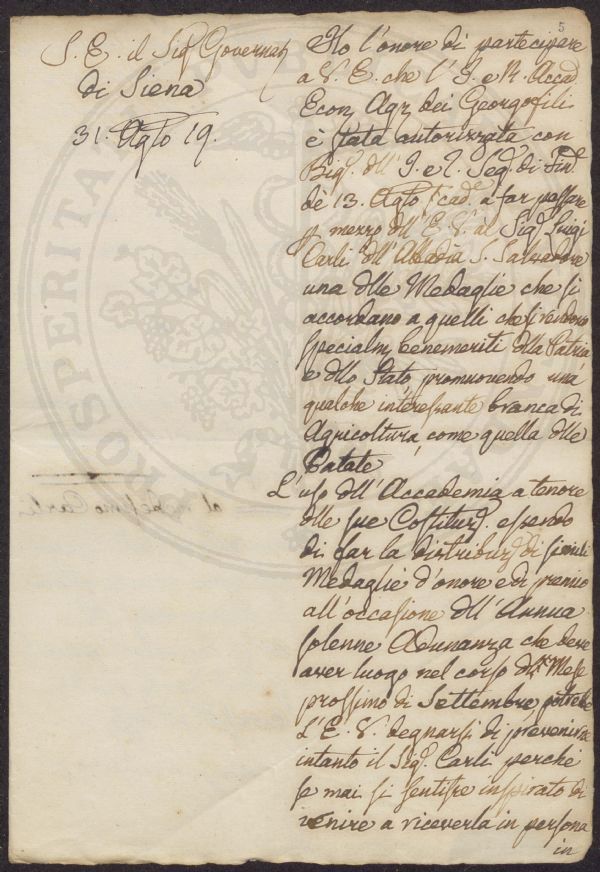 5
S. E. il Sig. Governat.
di Siena
31. Agto 19.
Ho l'onore di partecipare
a V. E. che l' I. e R. Accad.
Econ. Agr. dei Georgofili
è stata autorizzata con
Big. dll' I. e R. Seg. di Fin.
de 13. Agto cad. a far passare
p. mezzo dll' E. V. al Sig. Luigi
Carli dll' Abbadia S. Salvadore
una dlle Medaglie che si
accordano a quelli che si rendono
specialm. benemeriti dlla Patria
e dllo Stato, promuovendo una
qualche interessante branca di
Agricoltura, come quella dlle
Patate
L'uso dll' Accademia a tenore
dlle sue Costituz. essendo
di far la distribuz. di simili
Medaglie d'onore e di premio
all' occasione dll' Annua
solenne Adunanza che deve
aver luogo nel corso dl Mese
prossimo di Settembre, potrebbe
L'E. V. degnarsi di prevenirne
intanto il Sig. Carli perché
se mai si sentisse inspirato di
venire a riceverla in persona
in
PROSPERITA